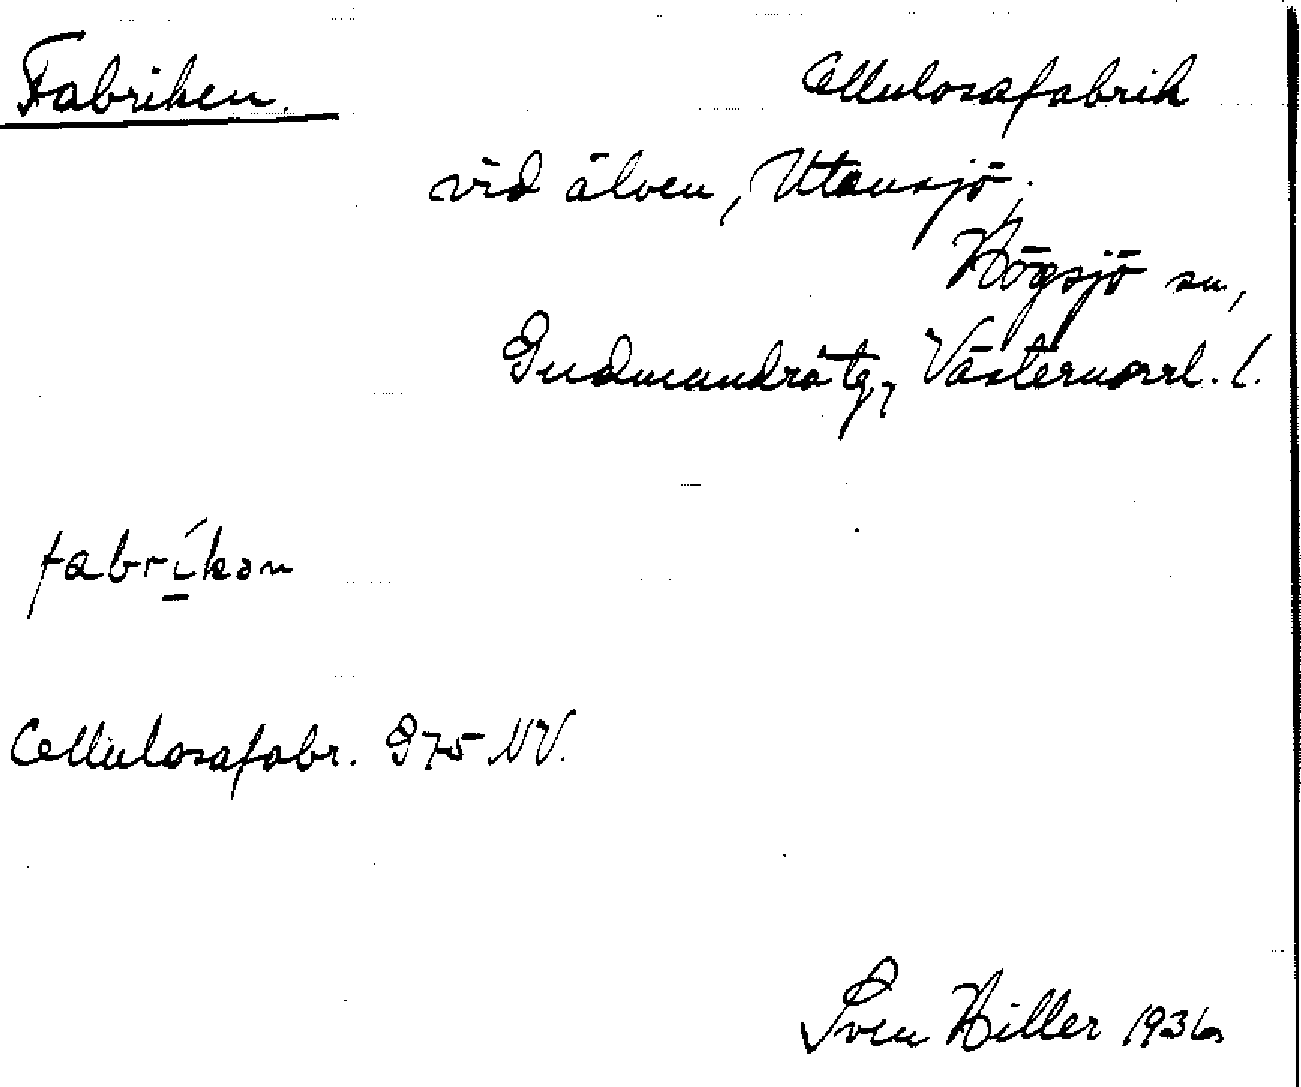 Fabriken. Cellulosafabrik
vid älven, Utansjö,
Högsjö sn,
Gudmundrå tg, Västernorrl. l.
fabríkən
Cellulosafabr. G75 NV.
Sven Hiller 1936